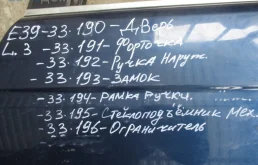 E39-33.190-Дверь
L.3 -33.191-Форточка
-33.192-Ручка Наруж.
-33.193-Замок
-33.194-Рамка Ручки.
-33.195-Стеклоподъёмник Мех.
-33.196-Ограничитель